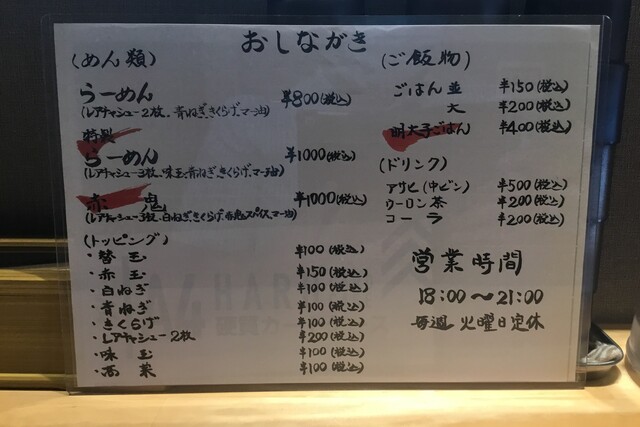 おしながき
(めん類)
らーめん ¥800(税込)
(レアチャシュー2枚、青ねぎ、きくらげ、マー油)
特製
らーめん ¥1000(税込)
(レアチャシュー3枚、味玉、青ねぎ、きくらげ、マー油)
赤鬼 ¥1000(税込)
(レアチャシュー3枚、白ねぎ、きくらげ、赤鬼スパイス、マー油)
(トッピング)
・替玉 ¥100(税込)
・赤玉 ¥150(税込)
・白ねぎ ¥100(税込)
・青ねぎ ¥100(税込)
・きくらげ ¥100(税込)
・レアチャシュー2枚 ¥200(税込)
・味玉 ¥100(税込)
・高菜 ¥100(税込)
(ご飯物)
ごはん 並 ¥150(税込)
大 ¥200(税込)
明太子ごはん ¥400(税込)
(ドリンク)
アサヒ(中ビン) ¥500(税込)
ウーロン茶 ¥200(税込)
コーラ ¥200(税込)
営業時間
18:00〜21:00
毎週 火曜日定休